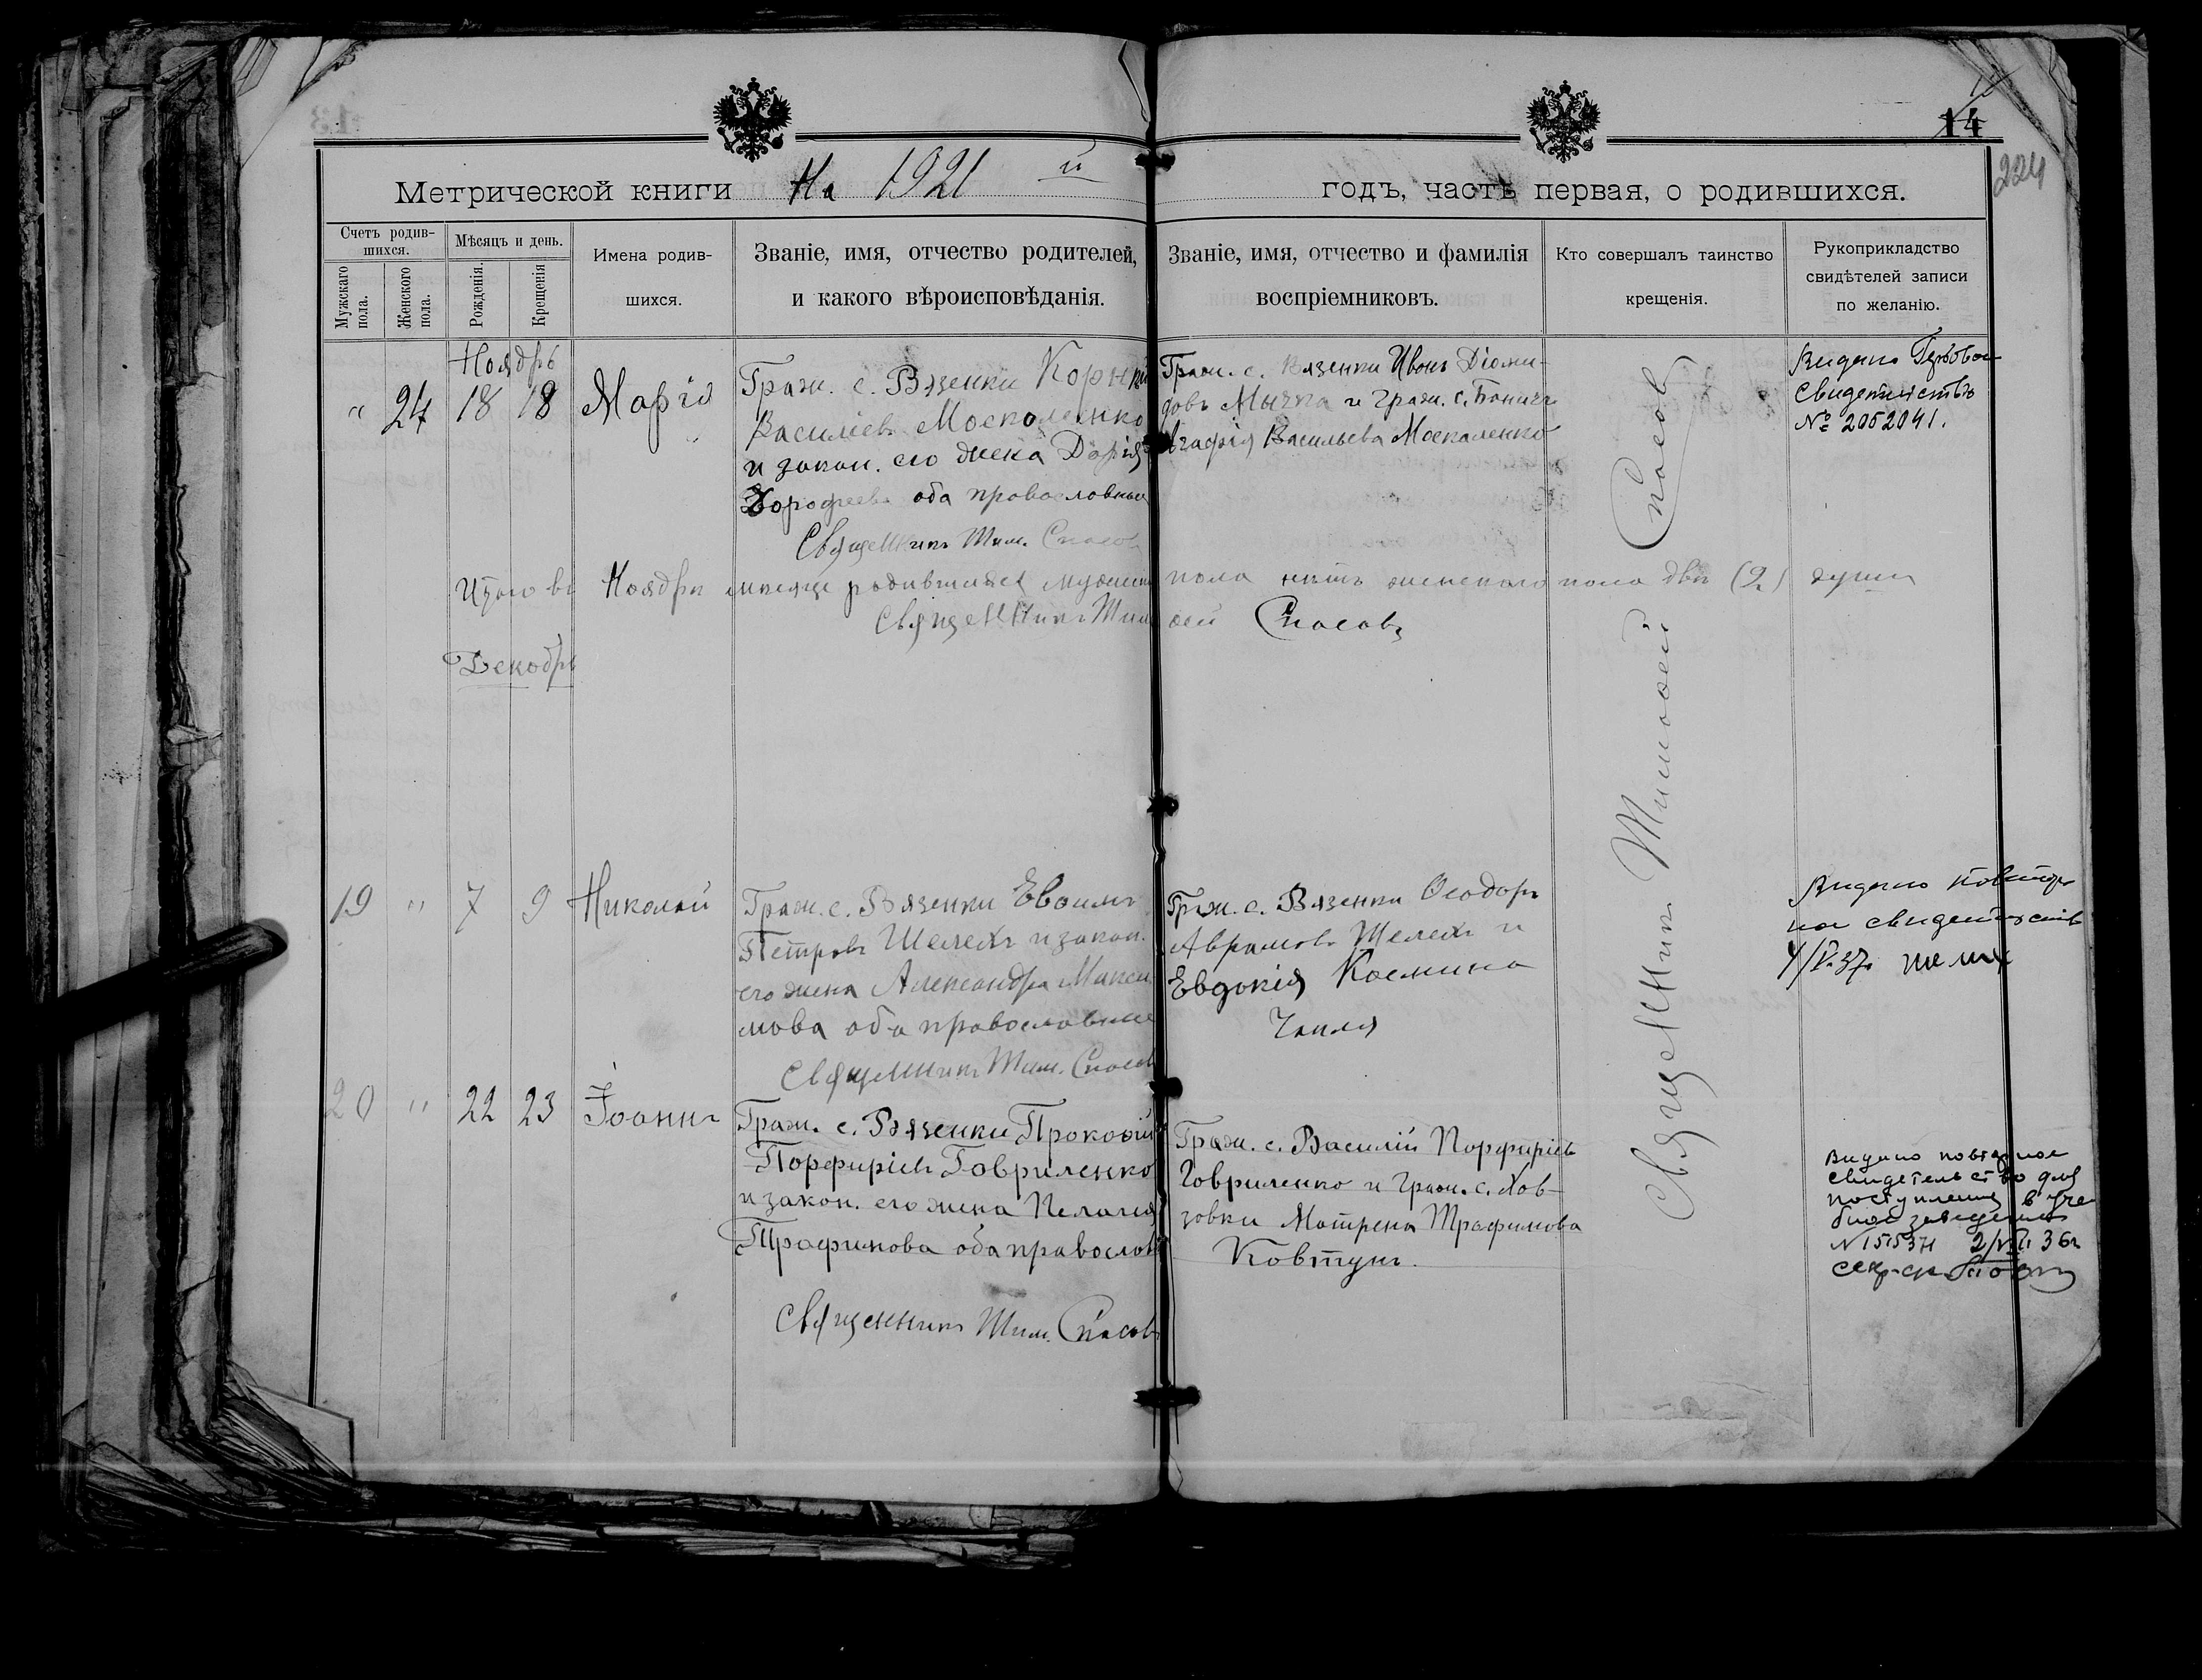 14
224
Метрической книги На 1921 й годъ, часть первая, о родившихся.
Счетъ родив-
шихся.
Мужскаго
пола.
Женского
пола.
Мѣсяцъ и день.
Рожденія.
Крещенія
Имена родив-
шихся.
Званіе, имя, отчество родителей,
и какого вѣроисповѣданія.
Званіе, имя, отчество и фамилія
воспріемниковъ.
Кто совершалъ таинство
крещенія.
Рукоприкладство
свидѣтелей записи
по желанію.
Ноябрь
" 24 18 18 Марія
Граж. с. Вязенки
Василіевъ Москаленко
и закон. его жена Дарія
Дорофеева оба православные
Священникъ Тим. Спасов
Граж. с. Вязенки Иванъ Діоми-
довъ Мычка и Граж. с.
Агафія Васильева Москаленко
Видано
Свидетельство
№ 2052041.
Итого въ Ноябрѣ месяце родившихся мужеск пола нѣтъ женскаго пола двѣ (2) души
Священникъ Тимофей Спасовъ
Декабрь
19 " 7 9 Николай
Граж. с. Вязенки
Петровъ Шелехъ и закон.
его жена Александра Макси
мова оба православные
Священникъ Тим. Спасов
Граж. с. Вязенки Феодоръ
Аврамовъ Шелехъ и
Евдокія Космина
Чапля
Видано повтор
ное свидетельств
4/V-37.
20 " 22 23 Іоаннъ
Граж. с. Вязенки Прокофій
Порфиріевъ Гавриленко
и закон. его жена Пелагия
Трофимова оба православ
Священникъ Тим. Спасов
Граж. с. Василій Порфиріевъ
Гавриленко и Граж. с. Хов-
зовки Матрена Трафимова
Ковтунъ.
Видано повторное
свидетельство для
поступления в уче
бное заведение
N 151537
Священник Тимофей Спасов